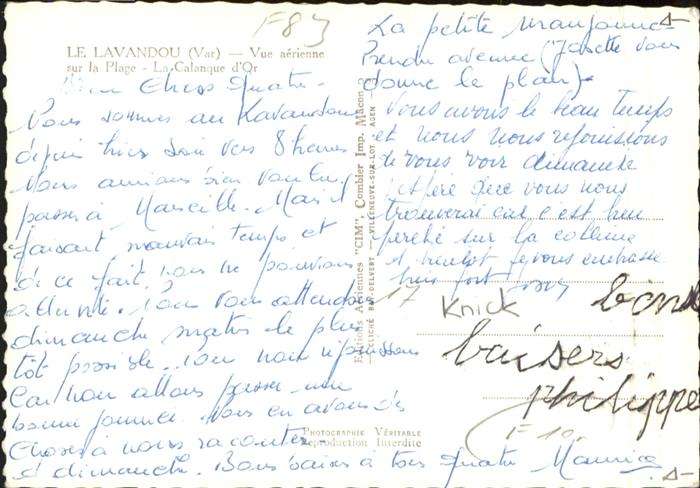 F 83
LE LAVANDOU (Var) — Vue aérienne
sur la Plage - La Calanque d'Or
Chers Quatre.
Nous sommes au Lavandou
depuis hier soir vers 8 heures
Nous aurions bien voulu
passer à Marseille. Mais il
faisait mauvais temps et
de ce fait. nous ne pouvions
attendre. Nous vous attendons
dimanche matin le plus
tôt possible. nous réjouissons
Car nous allons passer une
bonne journée. Nous en avons des
choses à nous raconter.
A dimanche. Bons baisers à tous quatre Maurice
La petite maisonnette
Prendre avenue (Josette vous
donne le plan).
Nous avons le beau temps
et nous nous réjouissons
de vous voir dimanche
J'espère que vous nous
trouverai car c'est bien
perché sur la colline
A bientot je vous embrasse
bien fort
17
Knick
bons
baisers
philippe
F 10.
Editions Aériennes "CIM", Combier Imp. Mâcon
VILLENEUVE-SUR-LOT - AGEN
PHOTOGRAPHIE VÉRITABLE
Reproduction Interdite